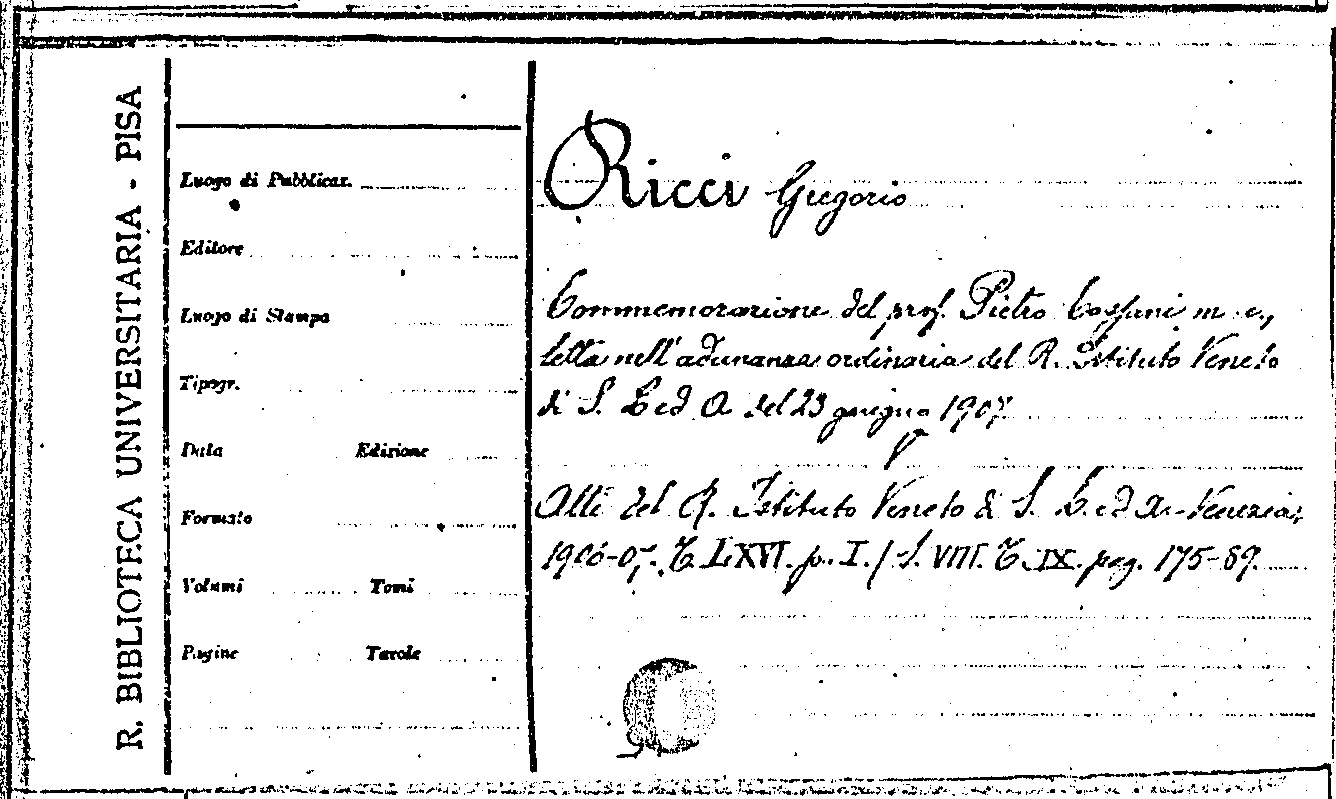 R. BIBLIOTECA UNIVERSITARIA - PISA
Luogo di Pubblicaz.
Editore
Luogo di Stampa
Tipogr.
Data Edizione
Formato
Volumi Tomi
Pagine Tavole
Ricci Gregorio
Commemorazione del prof. Pietro Cassani m. e.,
letta nell'adunanza ordinaria del R. Istituto Veneto
di S. L. ed A. del 23 giugno 1907
Atti del R. Istituto Veneto di S. L. ed A. - Venezia,
1906-07. T. LXVI. p. I. / S. VIII. T. IX. pag. 175-89.